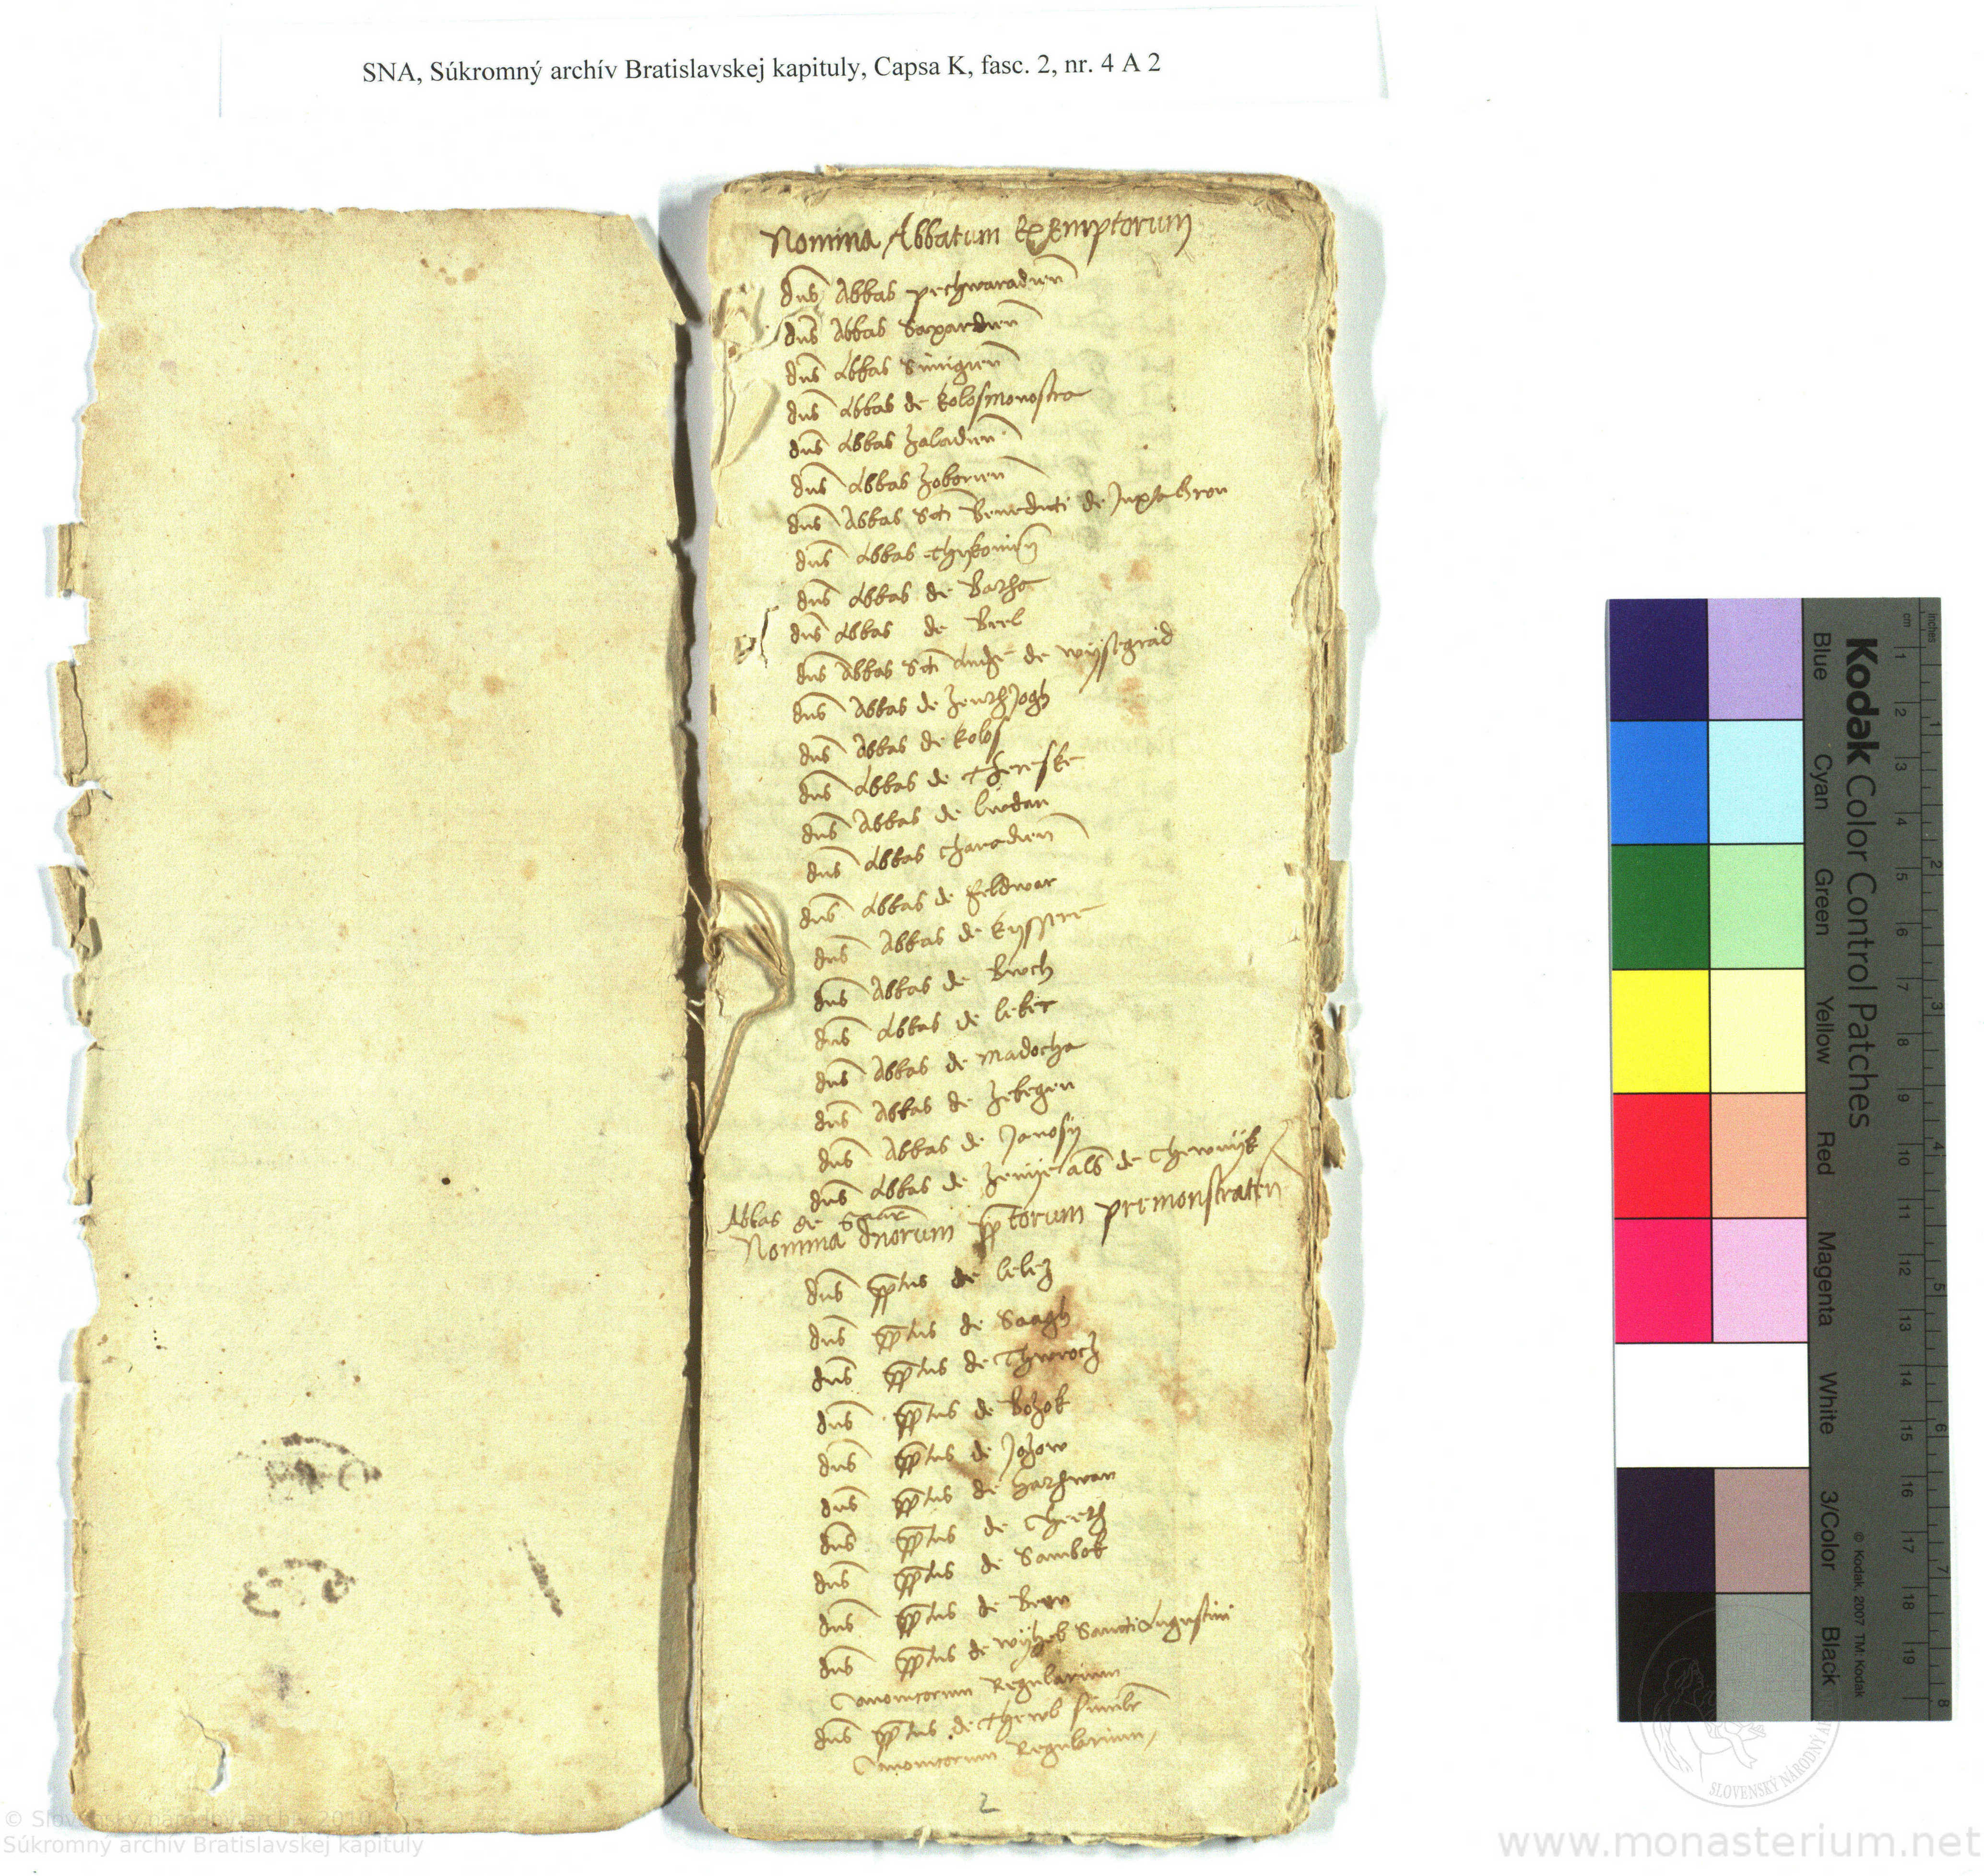 SNA, Súkromný archív Bratislavskej kapituly, Capsa K, fasc. 2, nr. 4 A 2
Nomina Abbatum Exemptorum
dns Abbas pechwaradien
dns Abbas Saxardien
dns Abbas Simigien
dns Abbas de kolosmonostra
dns Abbas zaladien
dns Abbas zoborien
dns Abbas Scti Benedicti de Juxta Gron
dns Abbas thykonien
dns Abbas de Batha
dns Abbas de Beel
dns Abbas Scti Andree de wyssegrad
dns Abbas de zenthJogh
dns Abbas de kolos
dns Abbas de thereske
dns Abbas de
dns Abbas charadien
dns Abbas de feldwar
dns Abbas de
dns Abbas de Bwch
dns Abbas de lebee
dns Abbas de madocha
dns Abbas de zebegen
dns Abbas de Janosy
dns Abbas de als de
Abbas de Saar
Nomina dnorum pptorum premonstraten
dns pptus de lelez
dns pptus de Saagh
dns pptus de Thwrocz
dns pptus de Bozok
dns pptus de Jazow
dns pptus de harthwan
dns pptus de
dns pptus de Sambok
dns pptus de
dns pptus de Sancti Augustini
Canonicorum Regularium
dns pptus de similr
Canonicorum Regularium
2
© Slovenský národný archív 2010
Súkromný archív Bratislavskej kapituly
Kodak Color Control Patches
Blue
Cyan
Green
Yellow
Red
Magenta
White
3/Color
Black
© Kodak, 2007 TM: Kodak
cm 1 2 3 4 5 6 7 8 9 10 11 12 13 14 15 16 17 18 19
inches 1 2 3 4 5 6 7 8
SLOVENSKÝ NÁRODNÝ
www.monasterium.net